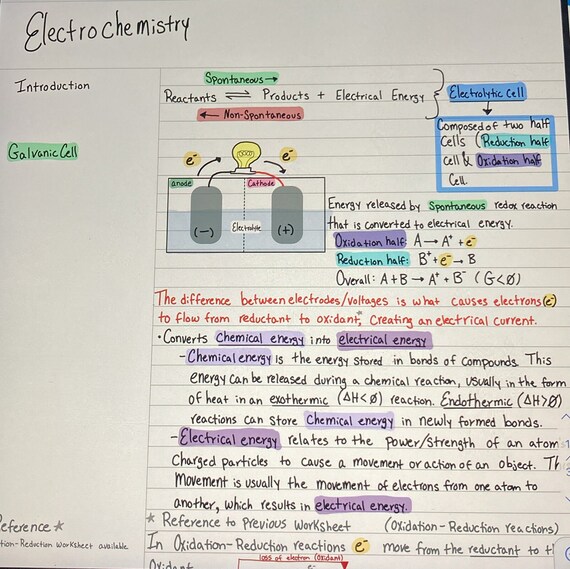 Electrochemistry
Introduction
Spontaneous →
Reactants ⇌ Products + Electrical Energy
← Non-Spontaneous
Electrolytic Cell
Composed of two half
Cells (Reduction half
cell & Oxidation half
Cell.
Galvanic Cell
e⁻ e⁻
anode Cathode
(-) Electrolyte (+)
Energy released by Spontaneous redox reaction
that is converted to electrical energy.
Oxidation half: A → A⁺ + e⁻
Reduction half: B⁺ + e⁻ → B
Overall: A + B → A⁺ + B⁻ (G<0)
The difference between electrodes/voltages is what causes electrons (e⁻)
to flow from reductant to oxidant,* creating an electrical current.
• Converts Chemical energy into electrical energy
- Chemical energy is the energy stored in bonds of compounds. This
energy can be released during a chemical reaction, usually in the form
of heat in an exothermic (ΔH<0) reaction. Endothermic (ΔH>0)
reactions can store Chemical energy in newly formed bonds.
- Electrical energy relates to the power/strength of an atoms
Charged particles to cause a movement or action of an object.
Movement is usually the movement of electrons from one atom to
another, which results in electrical energy.
eference *
tion-Reduction worksheet available
* Reference to Previous Worksheet (Oxidation-Reduction reactions)
In Oxidation-Reduction reactions e⁻ move from the reductant to
loss of electron (Oxidant)
Oxidant
e⁻